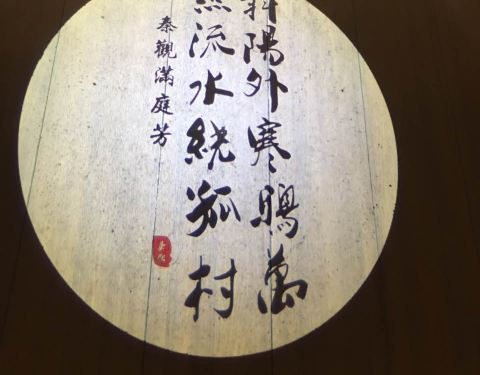 斜陽外寒鴉萬
點流水繞孤村
秦觀滿庭芳